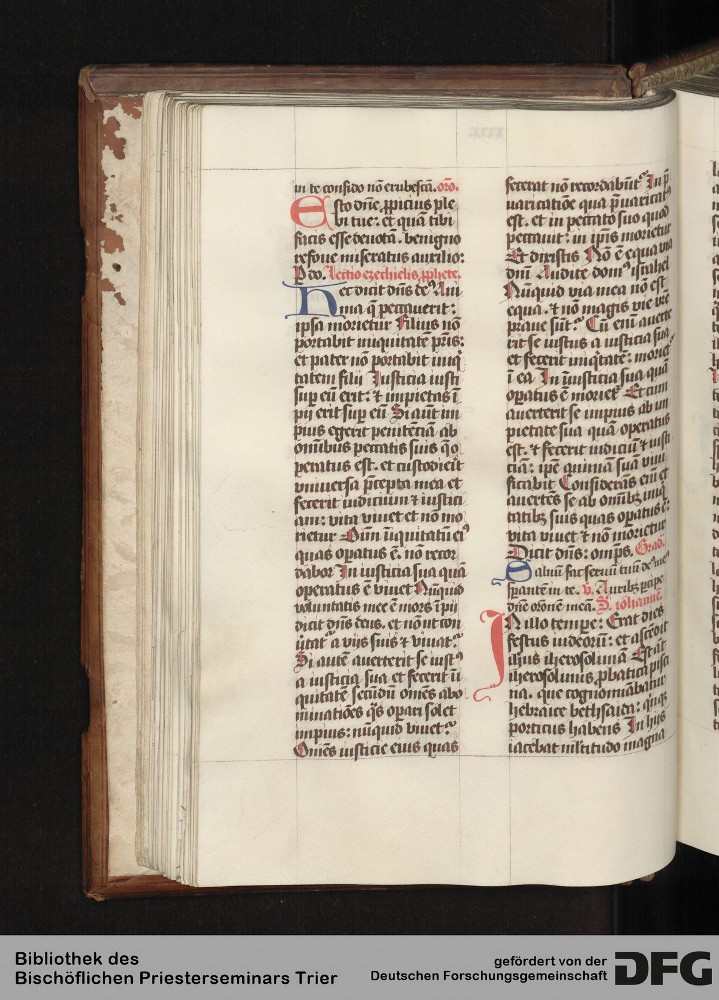 in te confido nō erubescā. oro.
Esto dn̄e ꝓpicius ple
bi tue: et quā tibi
facis esse deuotā. benigno
refoue miseratus auxilio:
P do. lectio ezechielis ꝓphete.
Hec dicit dn̄s deꝰ Ani
ma q̄ peccauerit:
ipsa morietur Filius nō
portabit iniquitatē pr̄is:
et pater nō portabit iniq̇
tatem filii Iusticia iusti
suꝑ eū erit: ⁊ impietas ī
pij erit suꝑ eū Si aūt im
pius egerit penitēciā ab
omībus peccatis suis q̄ o
peratus est. et custodierit
vniuersa p̄cepta mea et
fecerit iudicium ⁊ iustici
am: vita viuet et nō mo
rietur Oīm īiquitatū eiꝰ
quas oꝑatus ē. nō recor
dabor In iusticia sua quā
operatus ē viuet Nūquid
voluntatis mee ē mors īpii
dicit dn̄s deus. et nō ut con
ūtat᷑ a vijs suis ⁊ viuat᷑
Si autē auerterit se iustꝰ
a iusticia sua et fecerit ī
quitatē secūdū omēs abo
minatiōes q̄s oꝑari solet
impius: nūquid viuet᷑
Omēs iusticie eius quas
fecerat nō recordabūt᷑ In p̄
uaricatiōe qua p̄uaricatꝰ
est. et in peccato suo quod
peccauit: in ip̄is morietur
Et dixistis Nō ē equa via
dn̄i Audite domꝰ israhel
Nūquid via mea nō est
equa. ⁊ nō magis vie vr̄e
praue sūt᷑ Cū enī auerte
rit se iustus a iusticia sua
et fecerit iniq̇tatē: moriet᷑
ī ea In īiusticia sua quā
oꝑatus ē moriet᷑ Et cum
auerterit se impius ab im
pietate sua quā operatus
est. ⁊ fecerit iudiciū ⁊ iusti
ciā: ip̄e animā suā viui
ficabit Considerās enī et
auertēs se ab omībꝫ iniq̇
tatibꝫ suis quas oꝑatus ē:
vita viuet ⁊ nō morietur
Dicit dn̄s: omp̄s. Grad.
Saluū fac seruū tuū deꝰ meꝰ
sꝑantē in te. v. Auribꝫ ꝑcipe
dn̄e orōnē meā. S. iohannē.
In illo tempꝛe: Erat dies
festus iudeorū: et ascēdit
ihsus iherosolimā Est aūt
iherosolimis ꝓbatica pisci
na. que cognomiābatur
hebraice bethsaida: q̇nqꝫ
porticus habens In hijs
iacebat ml̄titudo magna
Bibliothek des
Bischöflichen Priesterseminars Trier
gefördert von der
Deutschen Forschungsgemeinschaft
DFG